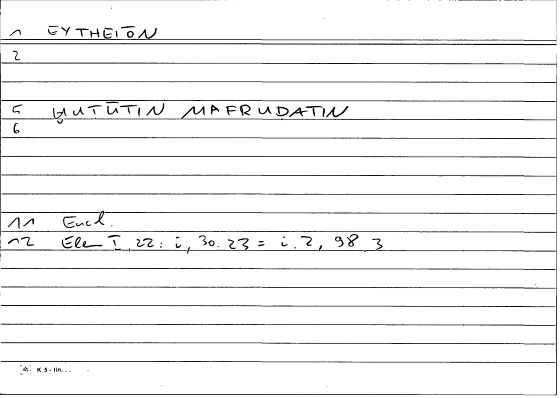 1 EYTHEIŌN
2
5 ḪUṬŪṬIN MAFRUDATIN
6
11 Eucl.
12 Ele I, 22: i, 30. 23 = i. 2, 98 3